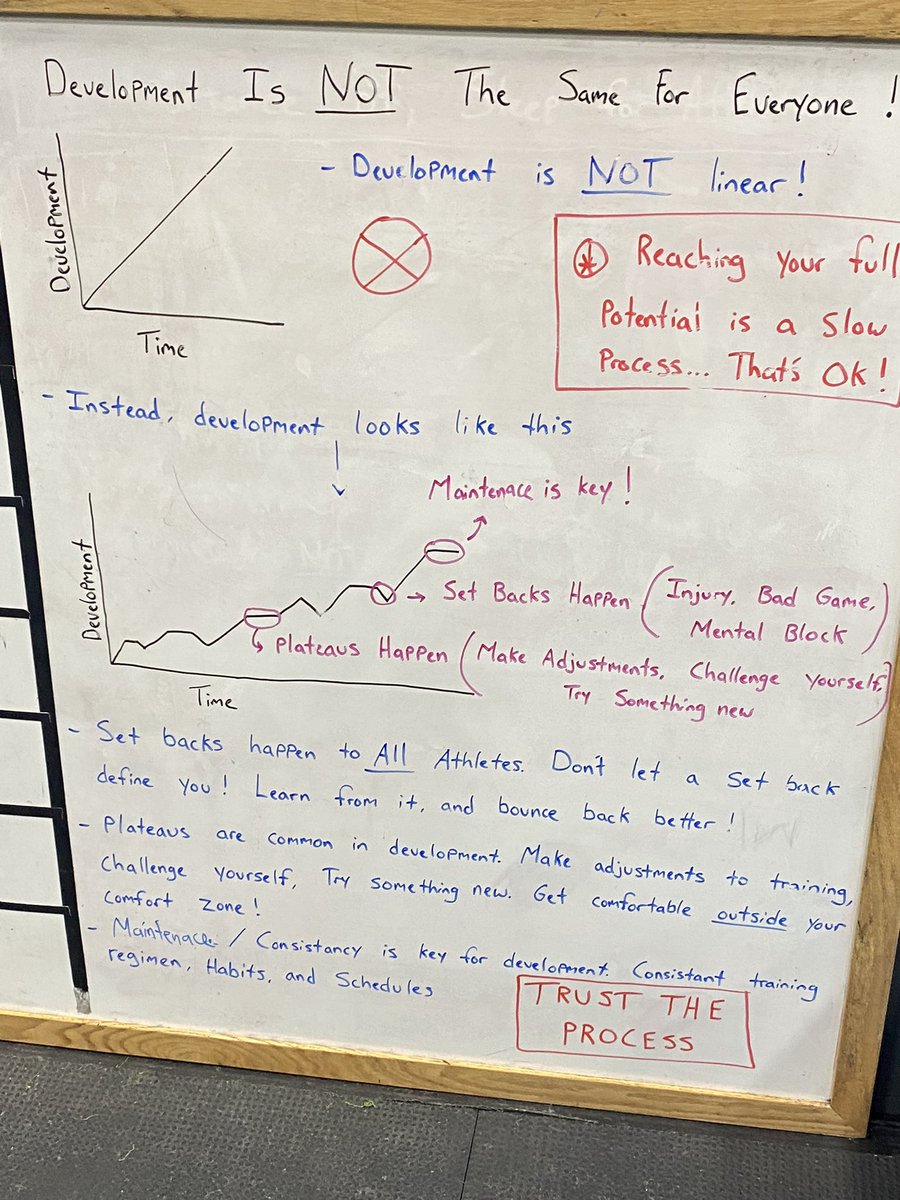 Development Is NOT The Same For Everyone !
Development
Time
- Development is NOT linear !
* Reaching your full
Potential is a slow
Process... That's OK !
- Instead, development looks like this
Maintenace is key !
Development
Time
→ Set Backs Happen (Injury, Bad Game,
Mental Block)
Plateaus Happen (Make Adjustments, Challenge yourself,
Try Something new)
- Set backs happen to All Athletes. Don't let a set back
define you ! Learn from it, and bounce back better !
- Plateaus are common in development. Make adjustments to training,
Challenge yourself, Try something new. Get comfortable outside your
comfort zone !
- Maintenace / Consistancy is key for development. Consistant training
regimen, Habits, and Schedules
TRUST THE
PROCESS